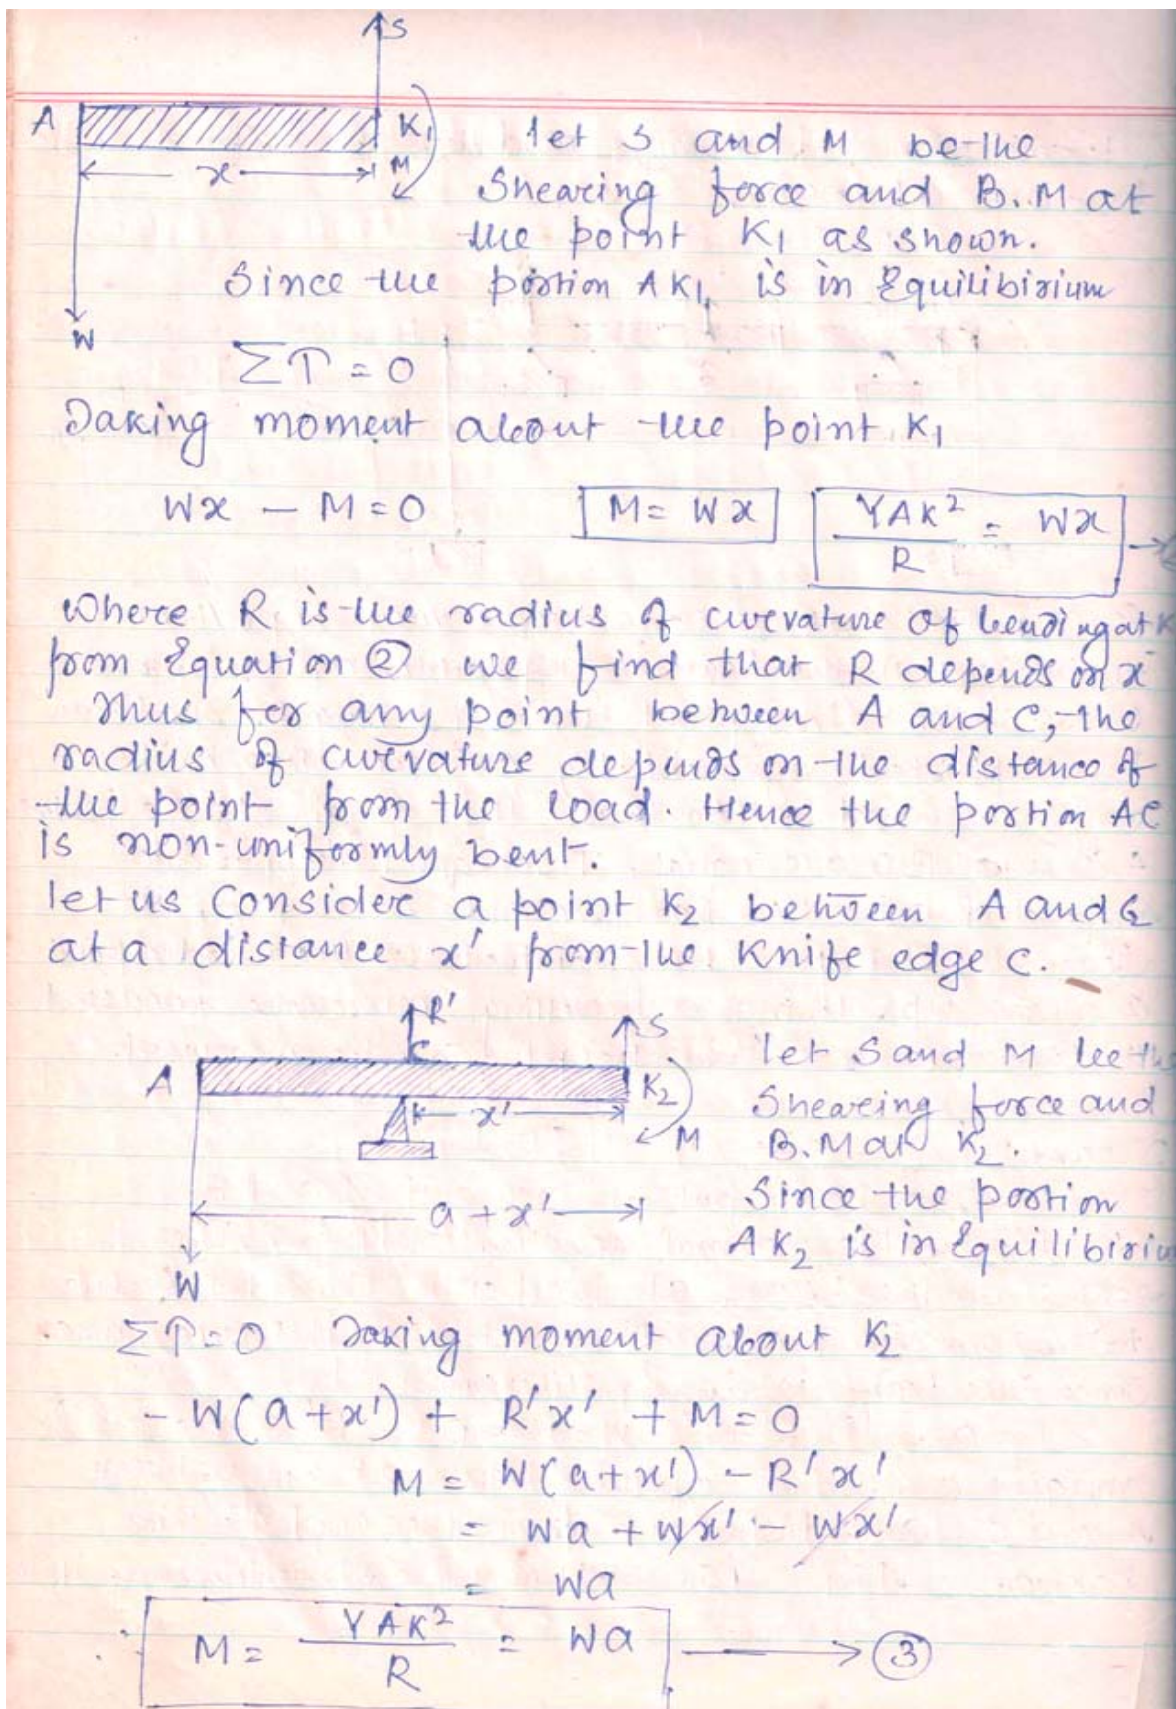 S
A K₁
x M
W
let S and M be the
Shearing force and B.M at
the point K₁ as shown.
Since the portion AK₁, is in Equilibirium
Στ = 0
Taking moment about the point K₁
Wx - M = 0 M = Wx YAK²/R = Wx →
Where R is the radius of curvature of bending at K
from Equation ② we find that R depends on x
Thus for any point between A and C, the
radius of curvature depends on the distance of
the point from the load. Hence the portion AC
is non-uniformly bent.
let us Consider a point K₂ between A and
at a distance x' from the Knife edge C.
R' S
C
A K₂
x' M
a + x'
W
let S and M be the
Shearing force and
B.M at K₂.
Since the portion
AK₂ is in Equilibiriu
Στ = 0 Taking moment about K₂
- W(a+x') + R'x' + M = 0
M = W(a+x') - R'x'
= Wa + Wx' - Wx'
= Wa
∴ M = YAK²/R = Wa → ③